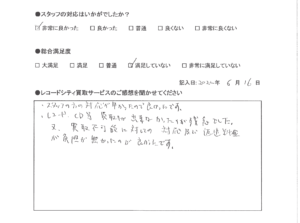 ●スタッフの対応はいかがでしたか？
□非常に良かった □良かった □普通 □良くない □非常に良くない
●総合満足度
□大満足 □満足 □普通 □満足していない □非常に満足していない
記入日:2020年 6月 16日
●レコードシティ買取サービスのご感想を聞かせてください
・スタッフの方の対応が早かったので良かったです。
・レコード、CD等 買取が出来なかったのが残念でした。
又、買取不可能に対しての対応及び返送料金
が負担が無かったのが良かったです。